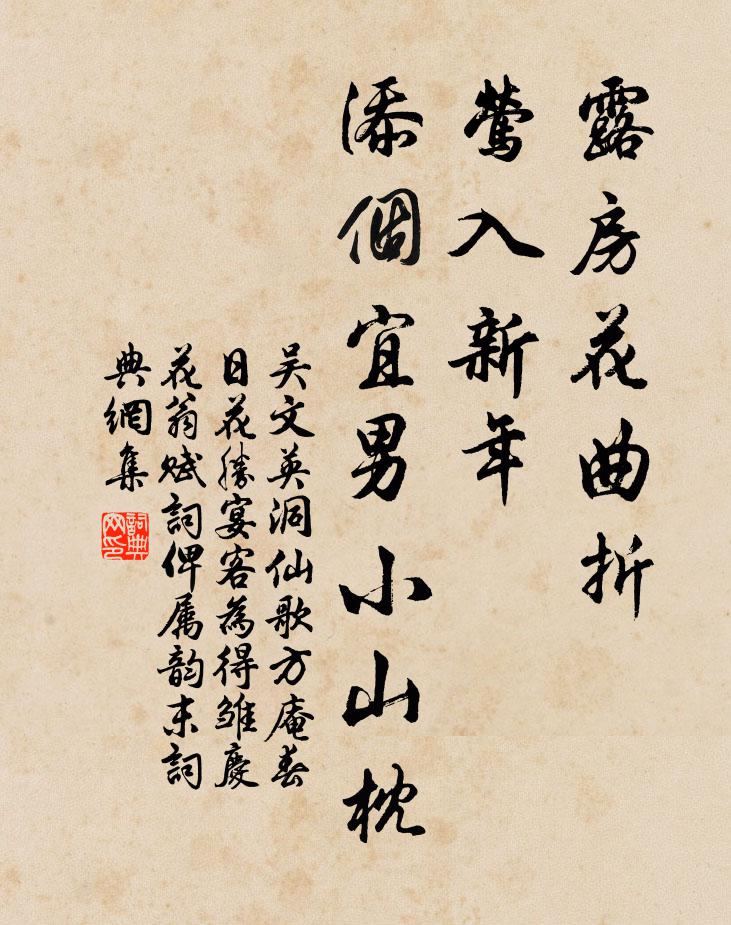 露房花曲折
莺入新年
添個宜男小山枕
吴文英洞仙歌方庵春
日花勝宴客為得雏慶
花翁赋詞俾属韵末詞
典網集
詞典
网印